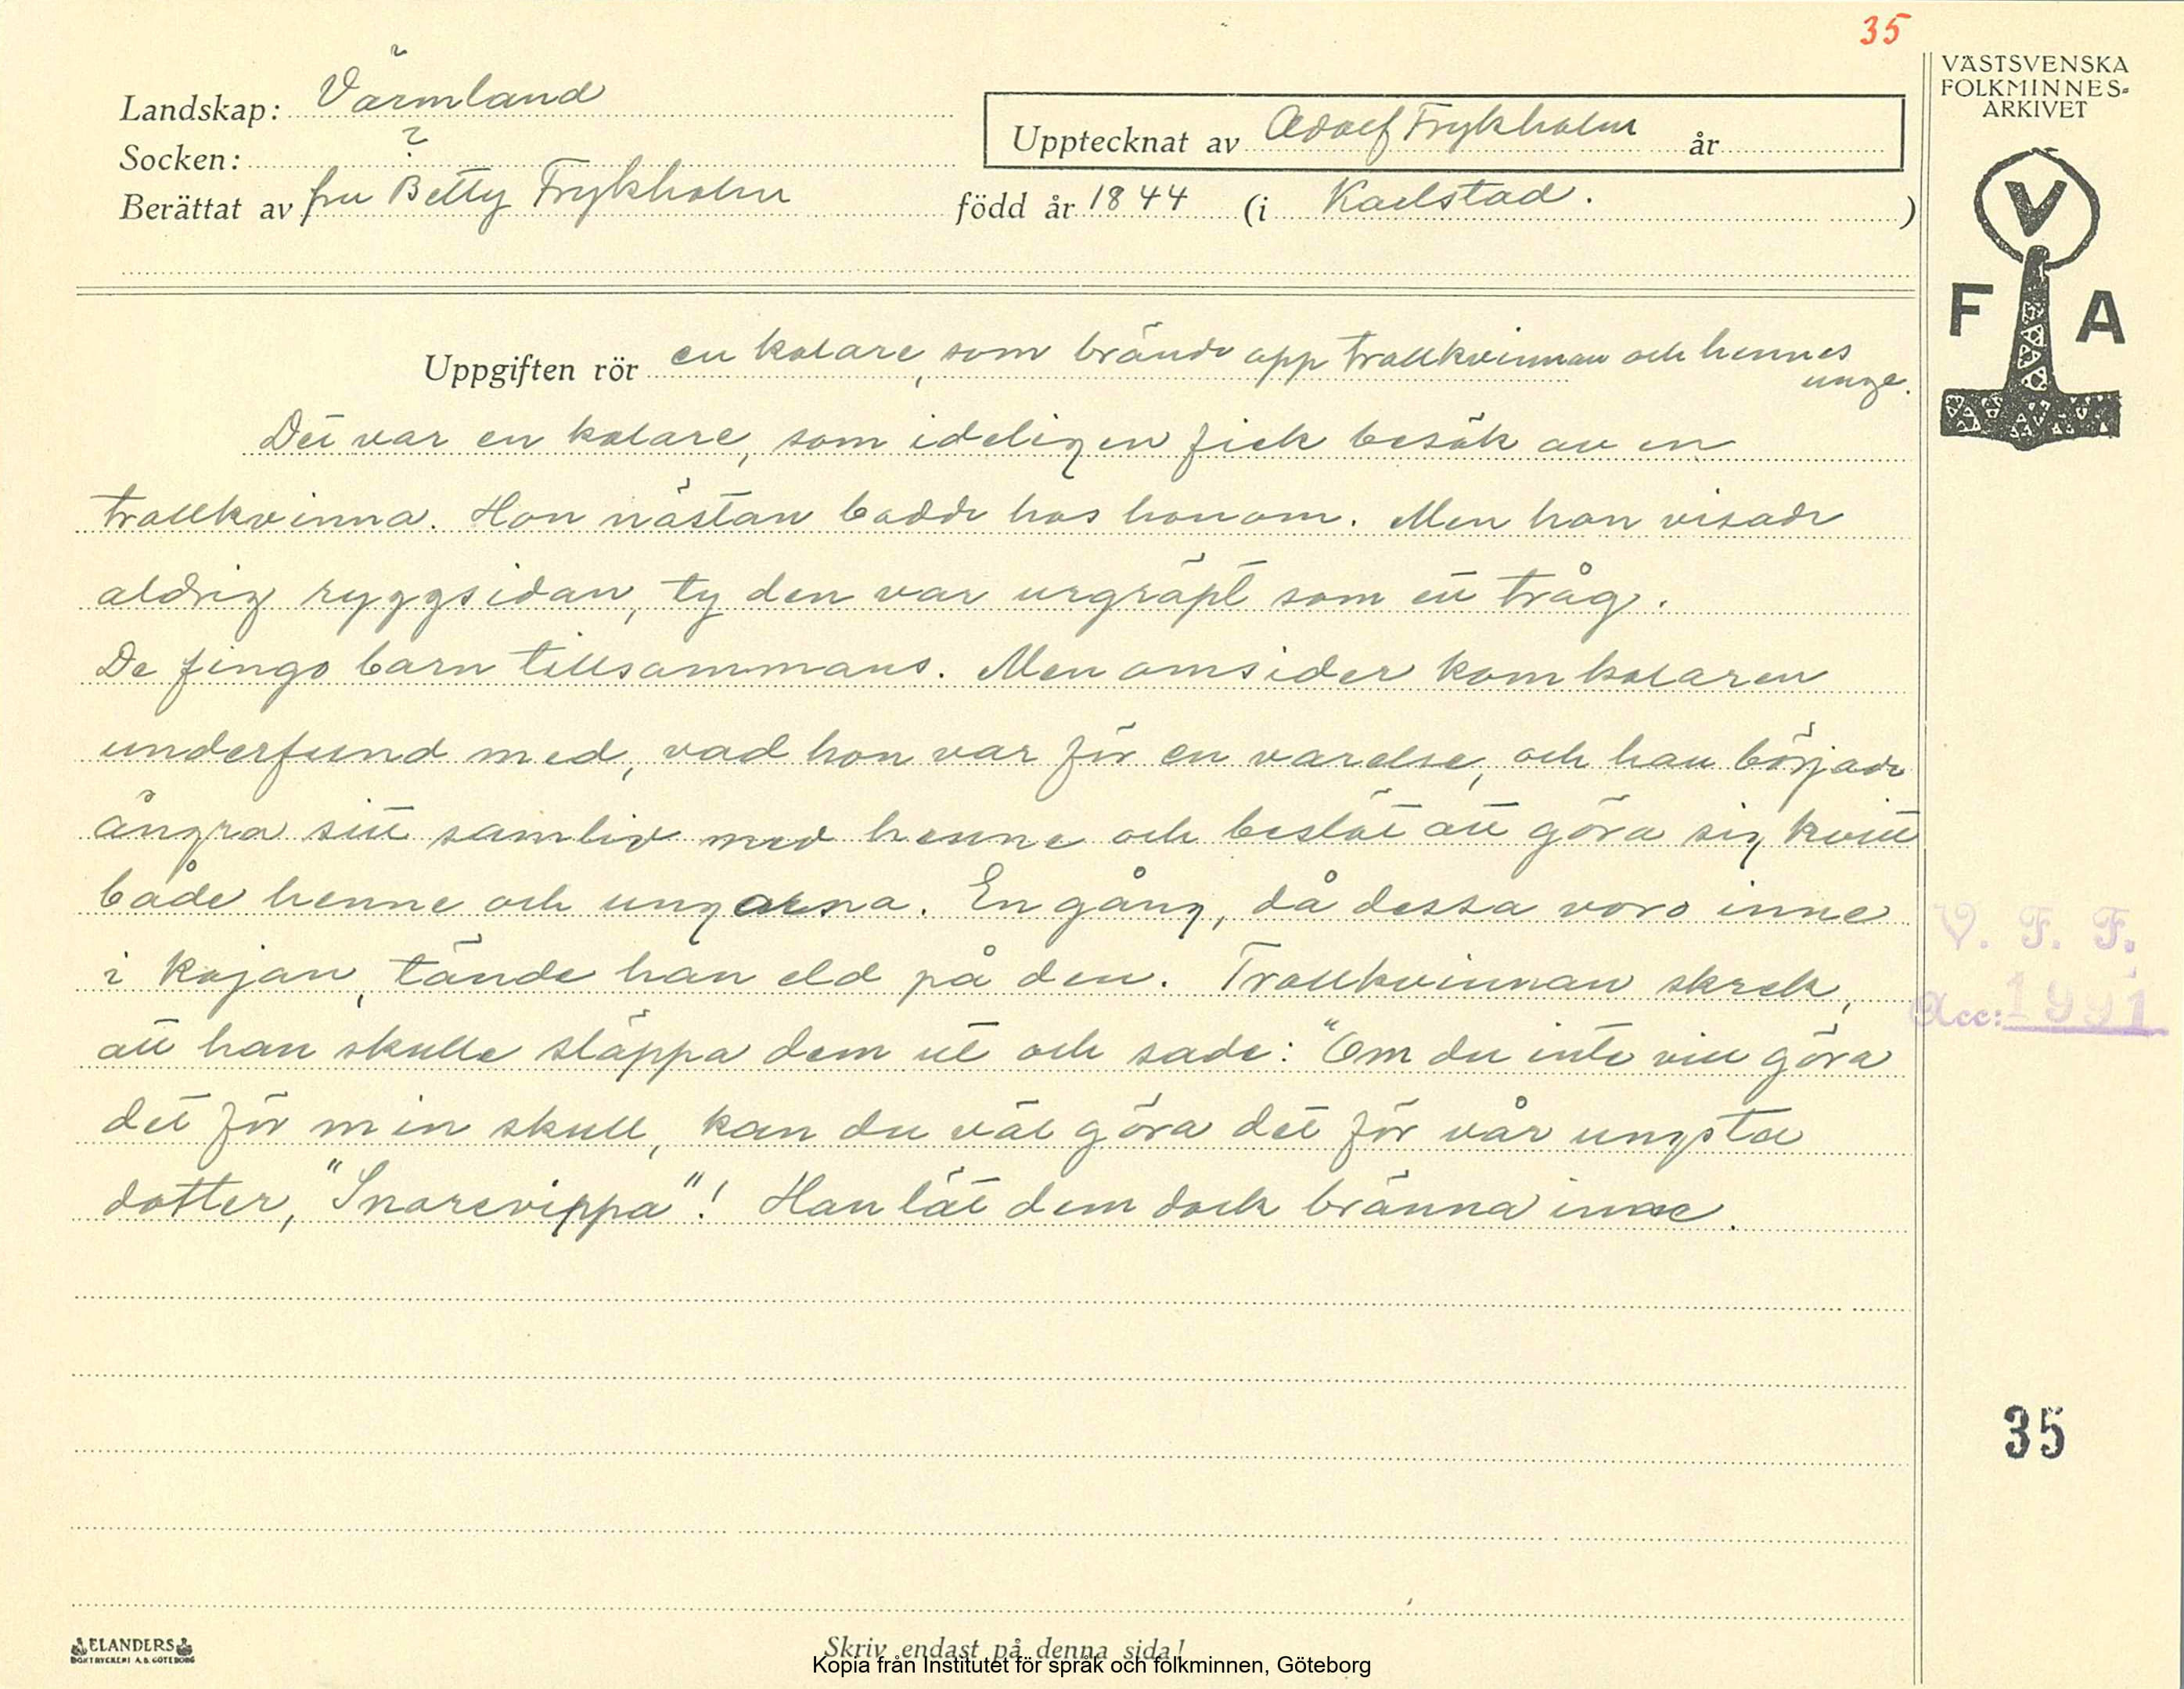 35
VÄSTSVENSKA
FOLKMINNES-
ARKIVET
V
F A
Landskap: Värmland
Socken: ?
Upptecknat av Adolf Frykholm år
Berättat av fru Betty Frykholm född år 1844 (i Karlstad. )
Uppgiften rör en kolare, som brände opp trollkvinnan och hennes
unge.
Det var en kolare, som ideligen fick besök av en
trollkvinna. Hon nästan bodde hos honom. Men hon visade
aldrig ryggsidan, ty den var urgröpt som ett tråg.
De fingo barn tillsammans. Men omsider kom kolaren
underfund med, vad hon var för en varelse, och han började
ångra sitt samliv med henne och beslöt att göra sig kvitt
både henne och ungarna. En gång, då dessa voro inne
i kojan, tände han eld på den. Trollkvinnan skrek,
att han skulle släppa dem ut och sade: "Om du inte vill göra
det för min skull, kan du väl göra det för vår yngsta
dotter, "Snarevippa"! Han lät dem dock bränna inne.
V. F. F.
Acc: 1991
35
ELANDERS
BOKTRYCKERI A.B. GÖTEBORG
Skriv endast på denna sida!
Kopia från Institutet för språk och folkminnen, Göteborg